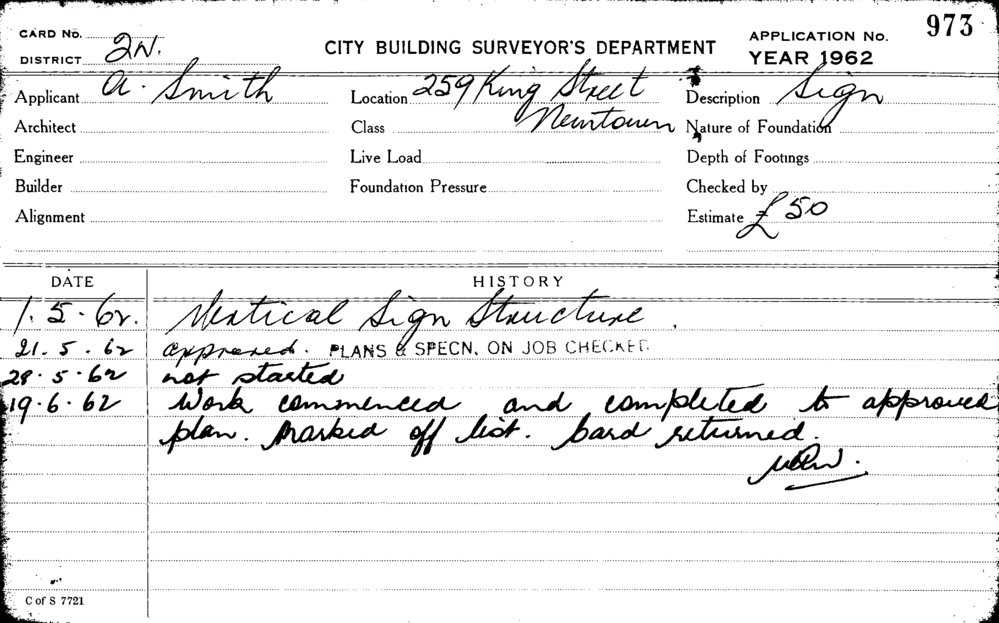 CARD No. 973
DISTRICT 2N. CITY BUILDING SURVEYOR'S DEPARTMENT APPLICATION No.
YEAR 1962
Applicant A. Smith Location 259 King Street Description Sign
Architect Class Newtown Nature of Foundation
Engineer Live Load Depth of Footings
Builder Foundation Pressure Checked by
Alignment Estimate £50
DATE HISTORY
1.5.62. Vertical Sign Structure.
21.5.62 approved. PLANS & SPECN. ON JOB CHECKED
28.5.62 not started
19.6.62 Work commenced and completed to approved
plan. Marked off list. Card returned.
C of S 7721